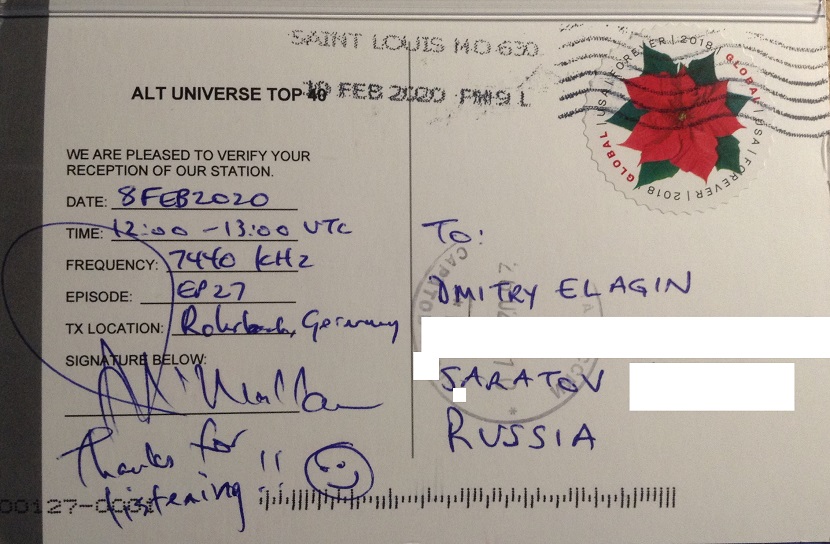 SAINT LOUIS MO 630
19 FEB 2020 PM 9 L
ALT UNIVERSE TOP 40
WE ARE PLEASED TO VERIFY YOUR
RECEPTION OF OUR STATION.
DATE: 8 FEB 2020
TIME: 12:00 - 13:00 UTC
FREQUENCY: 7440 kHz
EPISODE: EP 27
TX LOCATION: Rohrbach, Germany
SIGNATURE BELOW:
Thanks for
listening!!
GLOBAL | USA | FOREVER | 2018 | GLOBAL | USA | FOREVER | 2018 |
To:
DMITRY ELAGIN
SARATOV
RUSSIA